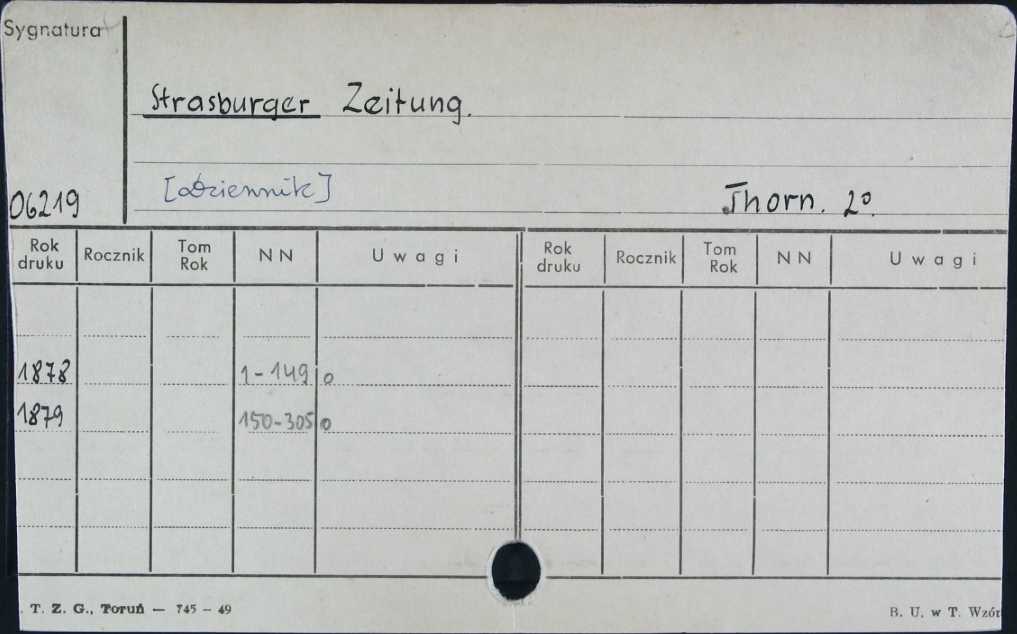 Sygnatura
Strasburger Zeitung.
[dziennik]
06219
Thorn. 2°.
Rok druku Rocznik Tom Rok NN Uwagi Rok druku Rocznik Tom Rok NN Uwagi
1878 1-149 o
1879 150-305 o
T. Z. G., Toruń — 745 — 49
B. U. w T. Wzór